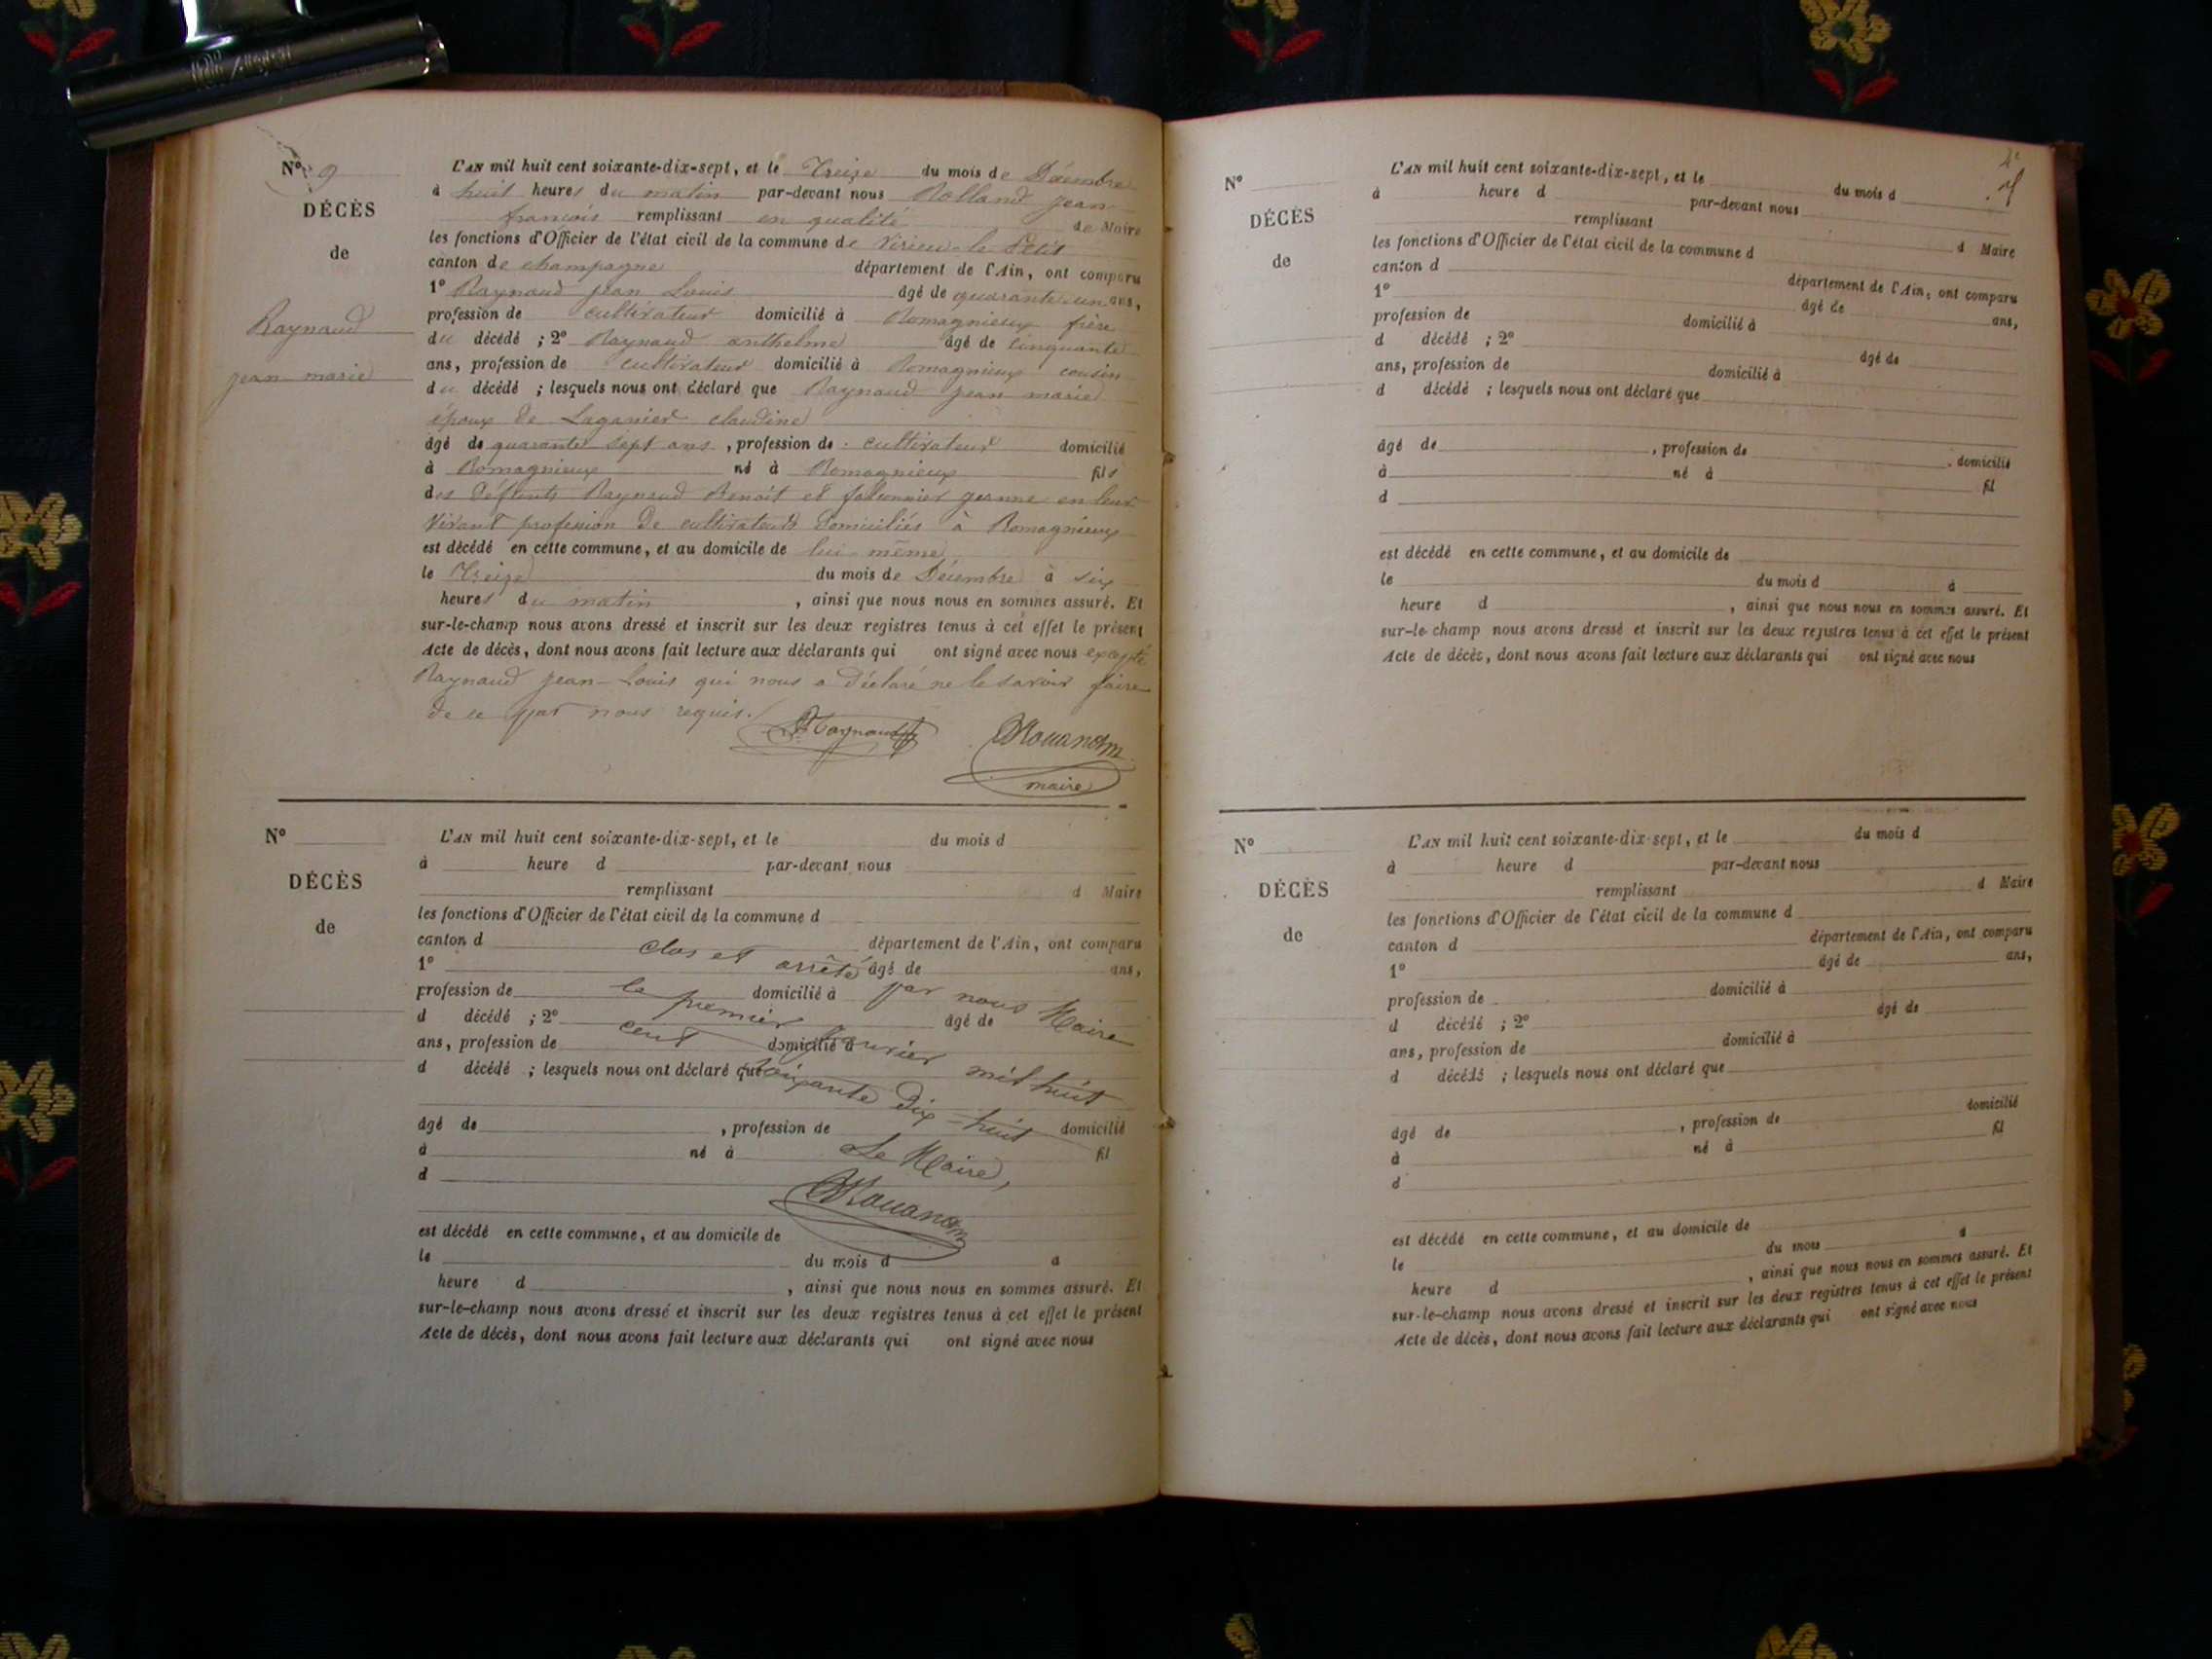 N° 9
DÉCÈS
de
Raynaud
jean marie
L'AN mil huit cent soixante-dix-sept, et le Treize du mois de Décembre
à huit heures du matin par-devant nous Rolland jean
françois remplissant en qualité de Maire
les fonctions d'Officier de l'état civil de la commune de Virieu-le-Petit
canton de champagne département de l'Ain, ont comparu
1° Raynaud jean Louis âgé de quarante-un ans,
profession de cultivateur domicilié à Romagnieux frère
du décédé ; 2° Raynaud anthelme âgé de cinquante
ans, profession de cultivateur domicilié à Romagnieux cousin
du décédé ; lesquels nous ont déclaré que Raynaud jean marie
époux de Laganier claudine
âgé de quarante sept ans, profession de cultivateur domicilié
à Romagnieux né à Romagnieux fils
des défunts Raynaud Benoit et jeanne en leur
vivant profession de cultivateurs domiciliés à Romagnieux
est décédé en cette commune, et au domicile de lui même
le Treize du mois de Décembre à six
heures du matin, ainsi que nous nous en sommes assuré. Et
sur-le-champ nous avons dressé et inscrit sur les deux registres tenus à cet effet le présent
Acte de décès, dont nous avons fait lecture aux déclarants qui ont signé avec nous excepté
Raynaud jean-Louis qui nous a déclaré ne le savoir faire
de ce par nous requis.
Raynaud
maire
N°
DÉCÈS
de
L'AN mil huit cent soixante-dix-sept, et le du mois d
à heure d par-devant nous
remplissant d Maire
les fonctions d'Officier de l'état civil de la commune d
canton d département de l'Ain, ont comparu
1° âgé de ans,
profession de domicilié à
d décédé ; 2° âgé de
ans, profession de domicilié à
d décédé ; lesquels nous ont déclaré que
âgé de , profession de domicilié
à né à fil
d
clos et arrêté par nous Maire
le premier janvier mil huit
cent soixante dix-huit
Le Maire,
est décédé en cette commune, et au domicile de
le du mois d à
heure d , ainsi que nous nous en sommes assuré. Et
sur-le-champ nous avons dressé et inscrit sur les deux registres tenus à cet effet le présent
Acte de décès, dont nous avons fait lecture aux déclarants qui ont signé avec nous
N°
DÉCÈS
de
L'AN mil huit cent soixante-dix-sept, et le du mois d
à heure d par-devant nous
remplissant d Maire
les fonctions d'Officier de l'état civil de la commune d
canton d département de l'Ain, ont comparu
1° âgé de ans,
profession de domicilié à
d décédé ; 2° âgé de
ans, profession de domicilié à
d décédé ; lesquels nous ont déclaré que
âgé de , profession de domicilié
à né à fil
d
est décédé en cette commune, et au domicile de
le du mois d à
heure d , ainsi que nous nous en sommes assuré. Et
sur-le-champ nous avons dressé et inscrit sur les deux registres tenus à cet effet le présent
Acte de décès, dont nous avons fait lecture aux déclarants qui ont signé avec nous
N°
DÉCÈS
de
L'AN mil huit cent soixante-dix-sept, et le du mois d
à heure d par-devant nous
remplissant d Maire
les fonctions d'Officier de l'état civil de la commune d
canton d département de l'Ain, ont comparu
1° âgé de ans,
profession de domicilié à
d décédé ; 2° âgé de
ans, profession de domicilié à
d décédé ; lesquels nous ont déclaré que
âgé de , profession de domicilié
à né à fil
d
est décédé en cette commune, et au domicile de
le du mois à
heure d , ainsi que nous nous en sommes assuré. Et
sur-le-champ nous avons dressé et inscrit sur les deux registres tenus à cet effet le présent
Acte de décès, dont nous avons fait lecture aux déclarants qui ont signé avec nous